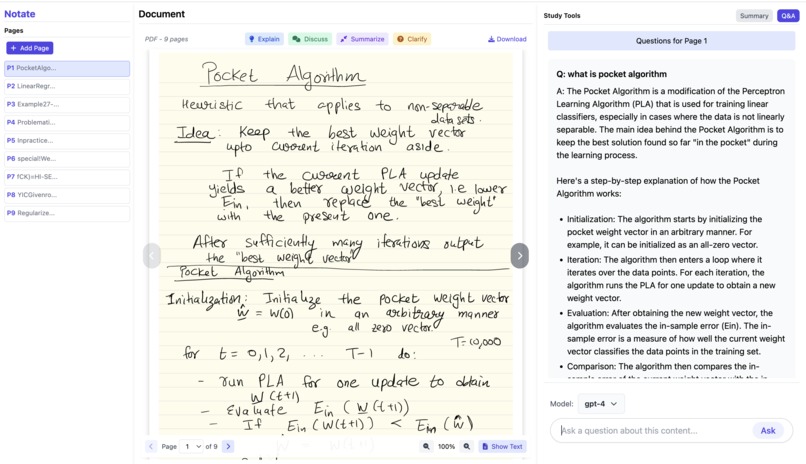 Notate
Pages
+ Add Page
P1 PocketAlgo...
P2 LinearRegr...
P3 Example27-...
P4 Problemati...
P5 Inpractice...
P6 special!We...
P7 fCK)=HI-SE...
P8 YICGivenro...
P9 Regularize...
Document
PDF - 9 pages
Explain
Discuss
Summarize
Clarify
Download
Pocket Algorithm
Heuristic that applies to non-separable
data sets.
Idea: Keep the best weight vector
upto current iteration aside.
If the current PLA update
yields a better weight vector, i.e lower
Ein, then replace the "best weight"
with the present one.
After sufficiently many iterations output
the "best weight vector"
Pocket Algorithm
Initialization: Initialize the pocket weight vector
ŵ = W(0) in an arbitrary manner
e.g. all zero vector.
T=10,000
for t = 0,1,2, ... T-1 do:
- run PLA for one update to obtain
W(t+1)
- Evaluate Ein (W(t+1))
- If Ein (W(t+1)) < Ein (ŵ)
Page 1 of 9
100%
Show Text
Study Tools
Summary
Q&A
Questions for Page 1
Q: what is pocket algorithm
A: The Pocket Algorithm is a modification of the Perceptron
Learning Algorithm (PLA) that is used for training linear
classifiers, especially in cases where the data is not linearly
separable. The main idea behind the Pocket Algorithm is to
keep the best solution found so far "in the pocket" during
the learning process.
Here's a step-by-step explanation of how the Pocket
Algorithm works:
• Initialization: The algorithm starts by initializing the
pocket weight vector in an arbitrary manner. For
example, it can be initialized as an all-zero vector.
• Iteration: The algorithm then enters a loop where it
iterates over the data points. For each iteration, the
algorithm runs the PLA for one update to obtain a new
weight vector.
• Evaluation: After obtaining the new weight vector, the
algorithm evaluates the in-sample error (Ein). The in-
sample error is a measure of how well the current weight
vector classifies the data points in the training set.
• Comparison: The algorithm then compares the in-
sample error of the current weight vector with the in-
Model: gpt-4
Ask a question about this content...
Ask